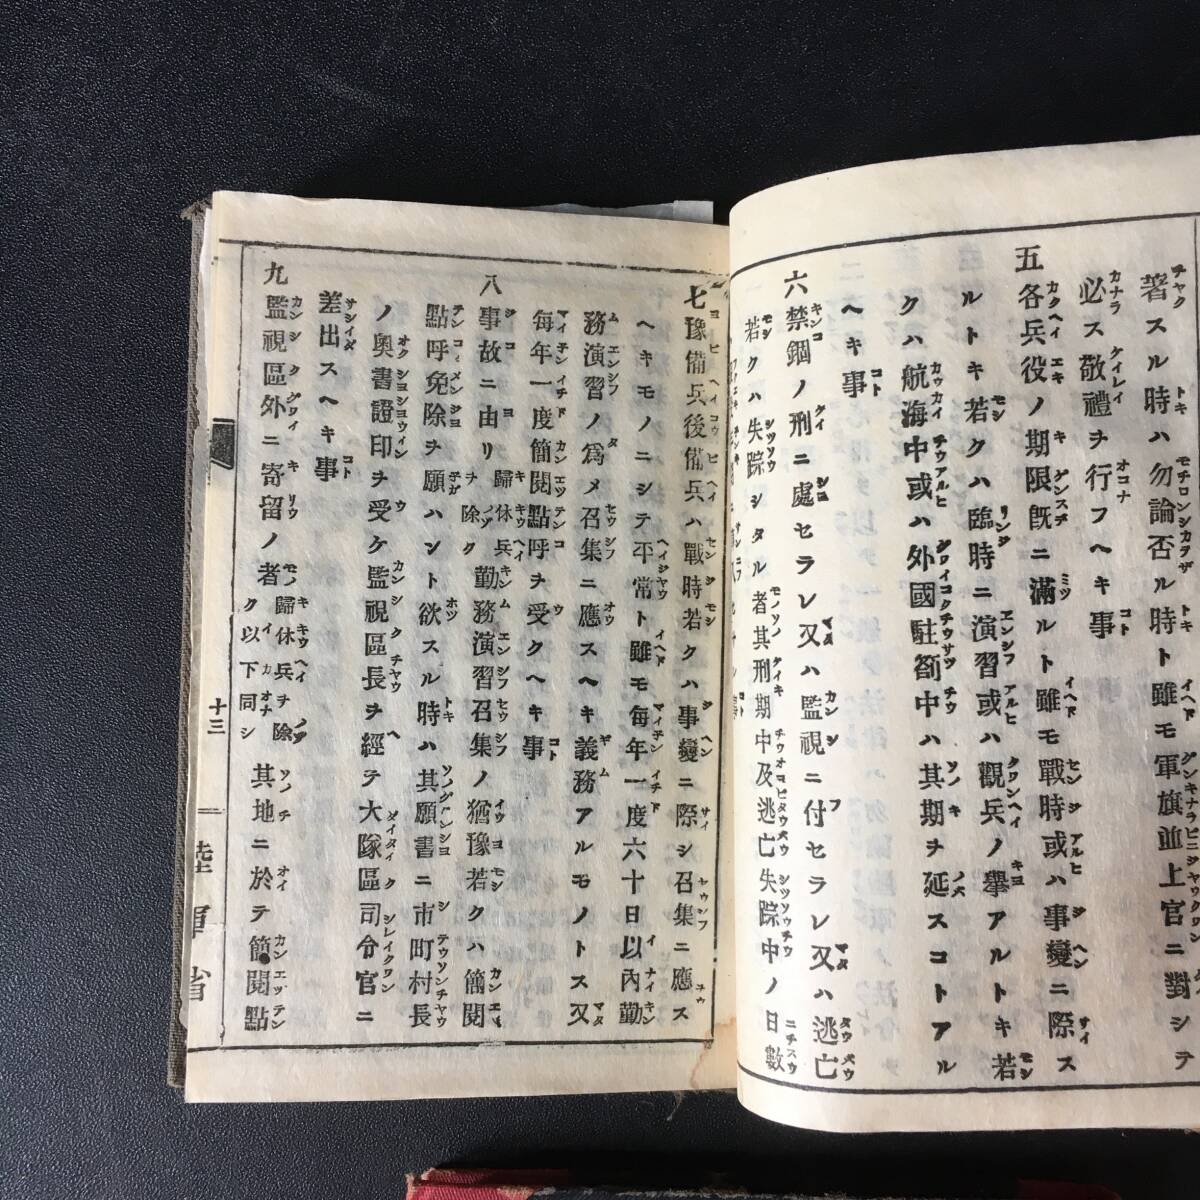 著スル時ハ勿論否ル時ト雖モ軍旗並上官ニ對シテ
必ス敬禮ヲ行フヘキ事
五 各兵役ノ期限旣ニ滿ルト雖モ戰時或ハ事變ニ際ス
ルトキ若クハ臨時ニ演習或ハ觀兵ノ擧アルトキ若
クハ航海中或ハ外國駐箚中ハ其期ヲ延スコトアル
ヘキ事
六 禁錮ノ刑ニ處セラレ又ハ監視ニ付セラレ又ハ逃亡
若クハ失踪シタル者其刑期中及逃亡失踪中ノ日數
七 豫備兵後備兵ハ戰時若クハ事變ニ際シ召集ニ應ス
ヘキモノニシテ平常ト雖モ每年一度六十日以內勤
務演習ノ爲メ召集ニ應スヘキ義務アルモノトス又
每年一度簡閱點呼ヲ受クヘキ事
八 事故ニ由リ歸休兵ヲ除ク勤務演習召集ノ猶豫若クハ簡閱
點呼免除ヲ願ハント欲スル時ハ其願書ニ市町村長
ノ奧書證印ヲ受ケ監視區長ヲ經テ大隊區司令官ニ
差出スヘキ事
九 監視區外ニ寄留ノ者歸休兵ヲ除ク以下同シ其地ニ於テ簡閱點
十三
陸軍省